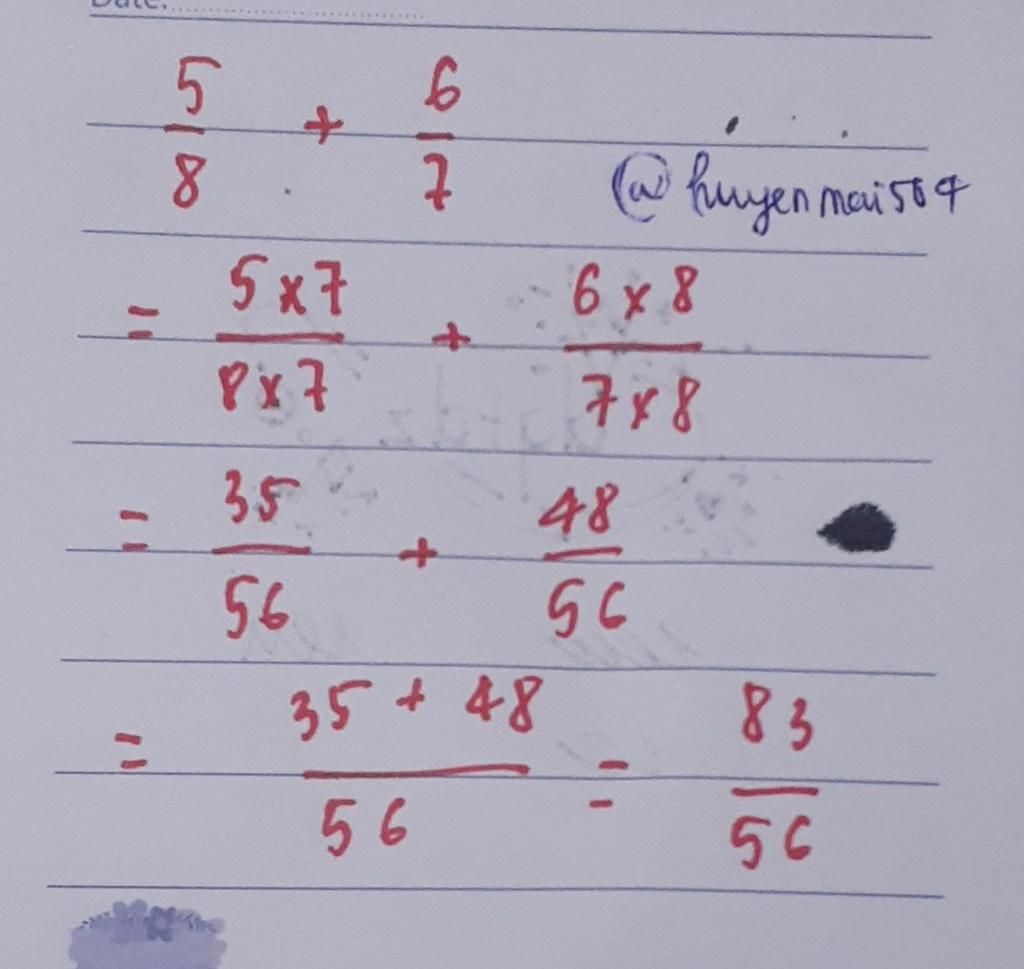 Date:
5/8 + 6/7
@huyenmai564
= 5x7/8x7 + 6x8/7x8
= 35/56 + 48/56
= 35 + 48/56 = 83/56